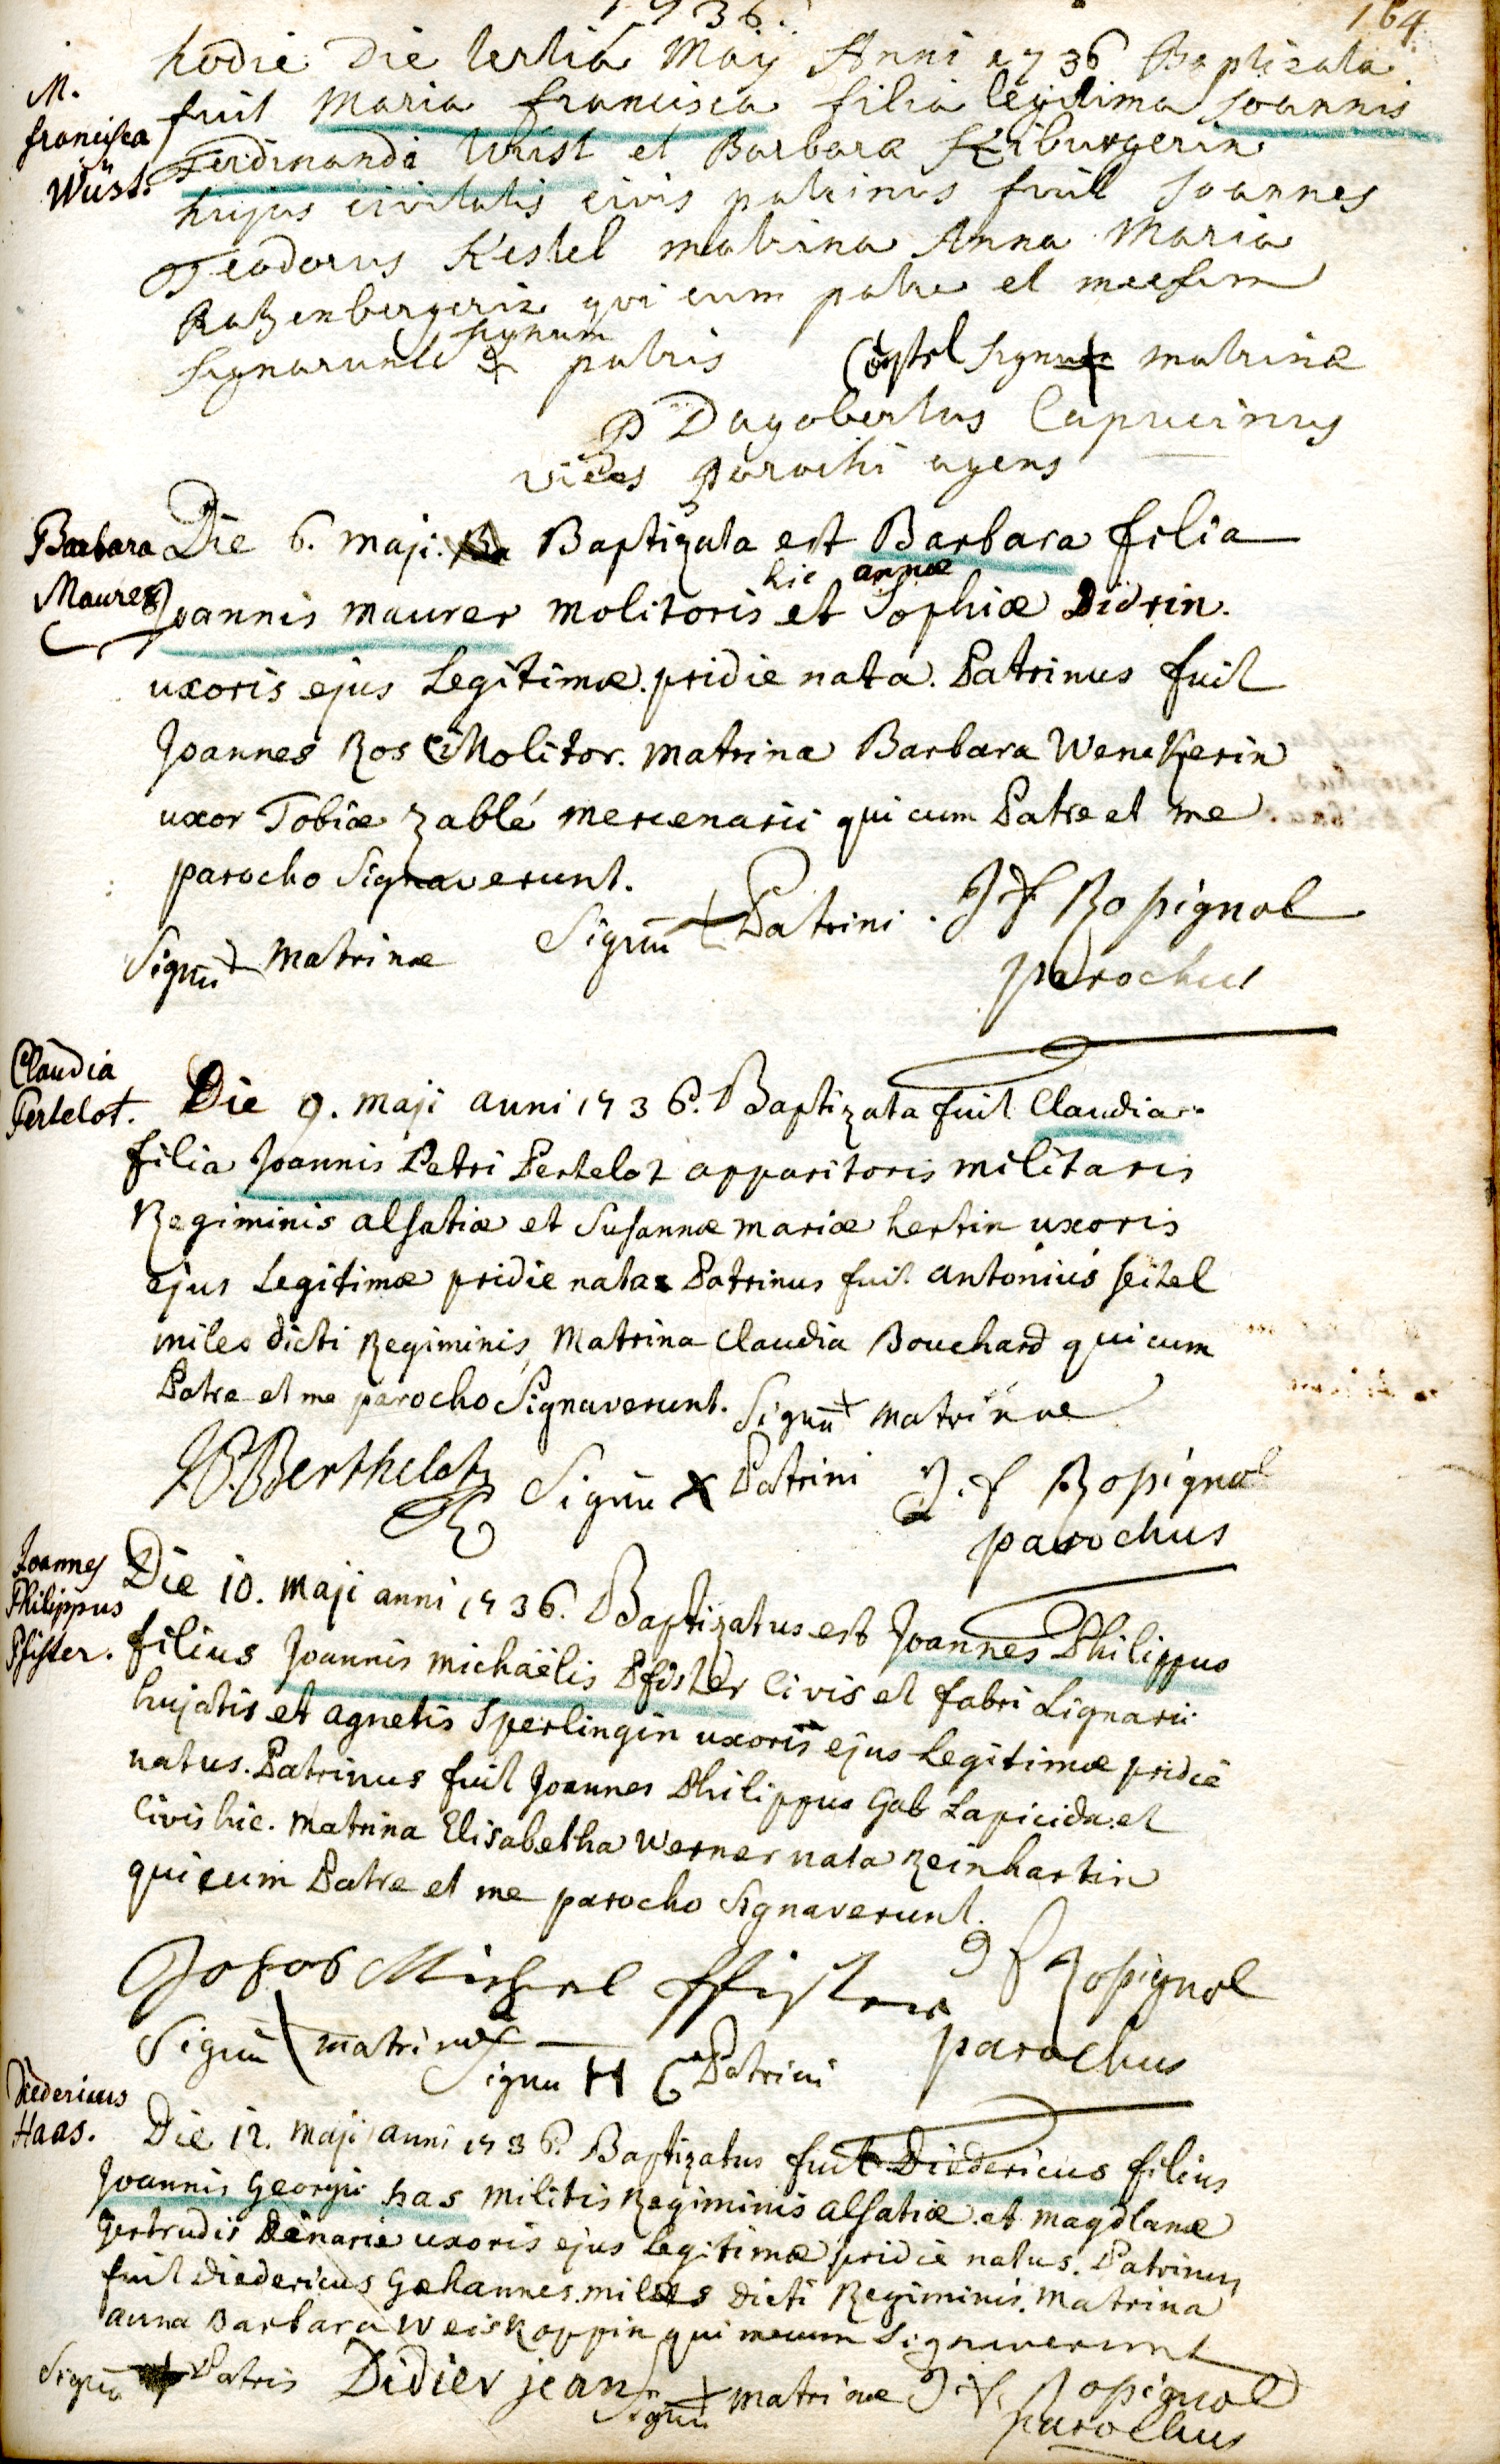 1736.
164
hodie Die tertia Maij Anni 1736 Baptizata
M.
francisca
Wüst.
fuit Maria francisca filia legitima Joannis
Ferdinandi Wüst et Barbara
hujus civitatis civis patrinus fuit Joannes
Teodorus Kestel matrina Anna Maria
Ratzenbergerin qui cum patre et mecum
signarunt signum patris signum matrinæ
P Dagobertus Capucinus
vices Parochi agens
Barbara
Maurer
Die 6. maji. Baptizata est Barbara filia
Joannis maurer molitoris hic et annæ Sophiæ Didrin.
uxoris ejus Legitimæ. pridie nata. Patrinus fuit
Joannes Ros Molitor. matrina Barbara
uxor Tobiæ Zablé mercenarii qui cum Patre et me
parocho Signaverunt.
Signū matrinæ Signū Patrini. J F Rosignol
parochus
Claudia
Pertelot.
Die 9. maji anni 1736. Baptizata fuit Claudia
filia Joannis Petri Pertelot apparitoris militaris
Regiminis alsatiæ et Susannæ mariæ hertin uxoris
ejus Legitimæ pridie nata. Patrinus fuit antonius seitel
miles dicti Regiminis, Matrina Claudia Bouchard qui cum
Patre et me parocho Signaverunt. Signū matrinæ
J.P. Berthelot Signū X Patrini J. F Rosignol
parochus
Joannes
Philippus
Pfister.
Die 10. maji anni 1736. Baptizatus est Joannes Philippus
filius Joannis michaëlis Pfister Civis et fabri Lignarii
hujatis et agnetis Sperlingin uxoris ejus Legitimæ pridie
natus. Patrinus fuit Joannes Philippus Gab Lapicida et
Civis hic. matrina Elisabetha Werner nata Reinhartin
qui cum Patre et me parocho Signaverunt.
Michael Pfister J F Rosignol
Signū matrinæ
Signū H G Patrini parochus
Diedericus
Haas.
Die 12. maji anni 1736. Baptizatus fuit Diedericus filius
Joannis Georgii has militis Regiminis alsatiæ et magdlanæ
gertrudis uxoris ejus Legitimæ pridie natus. Patrinus
fuit Diedericus Gehannes miles dicti Regiminis. Matrina
anna Barbara Weiskoppin qui mecum Signaverunt
Signū Patris Didier jean Signū matrinæ J. F. Rosignol
parochus